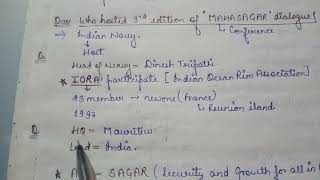 Que Who hosted 3rd edition of "MAHASAGAR" dialogue?
↳ Conference
⇒ Indian Navy.
↳ Host
Head of Neavy = Dinesh Tripati
* IORA partifipate [Indian Ocean Rim Association]
23 member → newone (France)
1997 ↳ Reunion iland.
Q HQ = Mauritius
Lead = India.
SAGAR (Security and Growth for all in